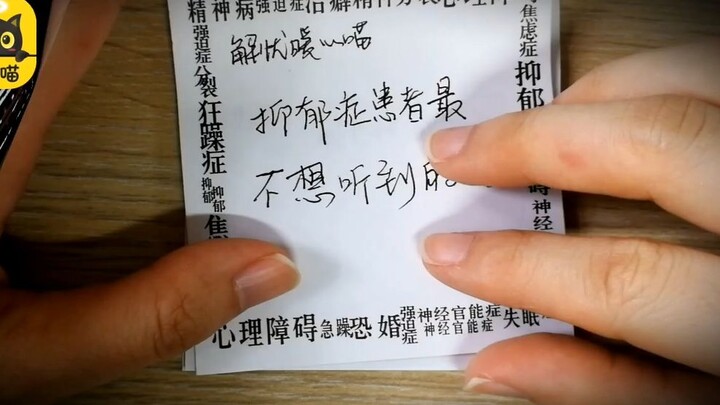 喵
精神病强迫症治癖精神分裂心理障
焦虑症
强迫症分裂
狂躁症
抑郁
抑郁
焦
抑郁
神经
解忧暖心喵
抑郁症患者最
不想听到的
心理障碍急躁恐婚强迫症神经官能症神经官能症失眠